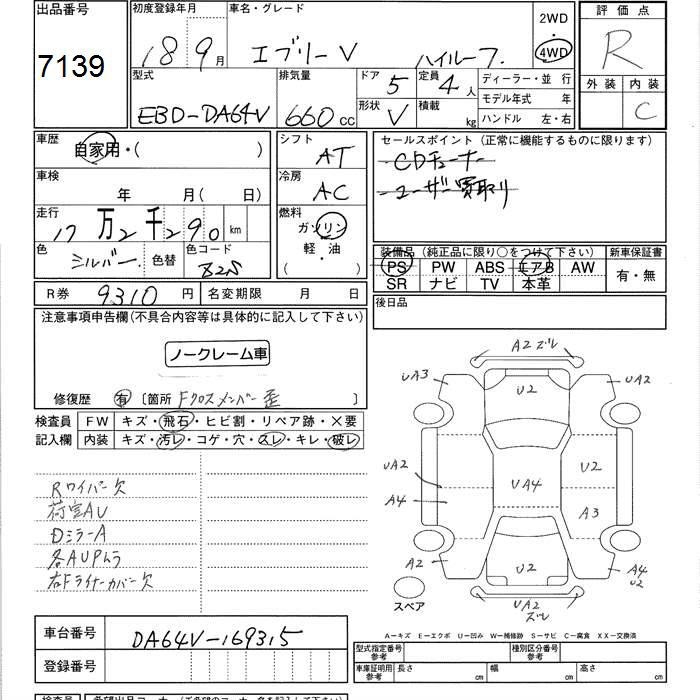 出品番号
7139
初度登録年月
18 9月
車名・グレード
エブリーV ハイルーフ
2WD
4WD
評価点
R
外装 内装
C
型式
EBD-DA64V
排気量
660 cc
ドア 5
形状 V
定員 4人
積載 kg
ディーラー・並行
モデル年式 年
ハンドル 左・右
車歴
自家用・( )
シフト
AT
セールスポイント (正常に機能するものに限ります)
CDチューナー
ユーザー買取り
車検
年 月( 日)
冷房
AC
走行
17万2千290 km
燃料
ガソリン
軽・油
( )
色
シルバー
色替
色コード
Z2S
装備品 (純正品に限り○をつけて下さい)
PS PW ABS エアB AW
SR ナビ TV 本革
新車保証書
有・無
R券 9310円
名変期限 月 日
後日品
注意事項申告欄(不具合内容等は具体的に記入して下さい)
ノークレーム車
修復歴 有 〔箇所 Fクロスメンバー歪 〕
検査員
記入欄
FW キズ・飛石・ヒビ割・リペア跡・×要
内装 キズ・汚レ・コゲ・穴・スレ・キレ・破レ
Rワイパー欠
荷室AU
DミラーA
各AUPムラ
右Fライナーカバー欠
A2 ズレ
UA3
U2
UA2
UA2
U2
UA4
A4
A3
U2
A4
U2
UA2
ズレ
スペア
A-キズ E-エクボ U-凹み W-補修跡 S-サビ C-腐食 XX-交換済
車台番号
DA64V-169315
登録番号
型式指定番号
参考
種別区分番号
参考
車庫証明用
参考
長さ cm
幅 cm
高さ cm